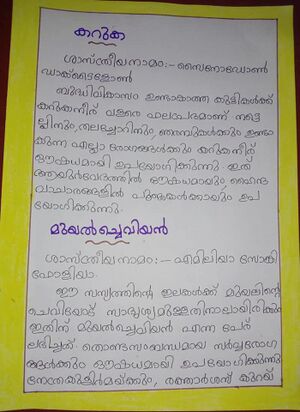 കറുക
ശാസ്ത്രീയനാമം:- സൈനോഡോൺ
ഡാക്ടൈളോൺ
ബുദ്ധിവികാസം ഉണ്ടാകാത്ത കുട്ടികൾക്ക്
കറുകനീര് വളരെ ഫലപ്രദമാണ് നട്ടെ
ല്ലിനും, തലച്ചോറിനും, ഞരമ്പുകൾക്കും ഉണ്ടാ
കുന്ന എല്ലാ രോഗങ്ങൾക്കും കറുകനീര്
ഔഷധമായി ഉപയോഗിക്കുന്നു. ഇത്
ആയുർവേദത്തിൽ ഔഷധമായും ഹൈന്ദ
വാചാരങ്ങളിൽ പൂജകൾക്കായും ഉപ
യോഗിക്കുന്നു.
മുയൽച്ചെവിയൻ
ശാസ്ത്രീയനാമം:- എമിലിയാ സോങ്കി
ഫോളിയാ.
ഈ സസ്യത്തിന്റെ ഇലകൾക്ക് മുയലിന്റെ
ചെവിയോട് സാദൃശ്യമുള്ളതിനാലായിരിക്കും
ഇതിന് മുയൽച്ചെവിയൻ എന്ന പേര്
ലഭിച്ചത്. തൊണ്ടസംബന്ധമായ സർവ്വരോഗ
ങ്ങൾക്കും ഔഷധമായി ഉപയോഗിക്കുന്നു
നേത്രകുളിർമയ്ക്കും, രക്താർശസ് കുറയ്